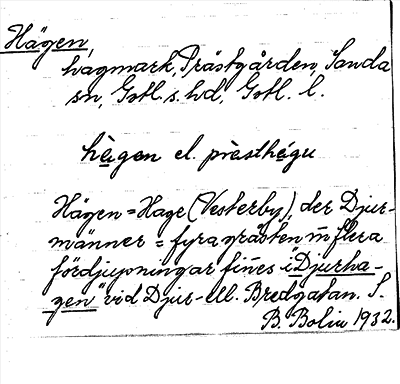 Hägen,
hagmark, Prästgården, Sanda
sn, Gotl. s. hd, Gotl. l.
hägen el. prästhägu
Hägen = Hage (Vesterby), der Djur-
männer = fyra grästen m flera
fördjupningar finnes i "Djurha-
gen" vid Djur- Bredgatan. S.
B. Bolin 1932.